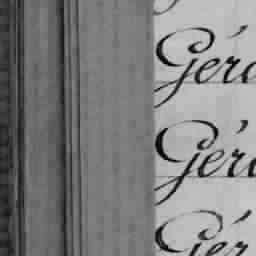 Géra
Géra
Gér